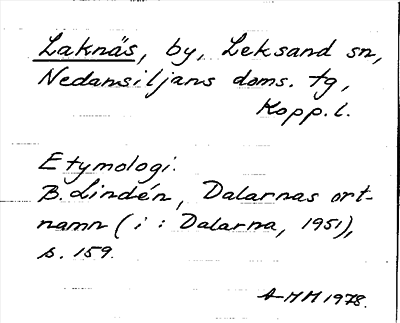 Laknäs, by, Leksand sn,
Nedansiljans doms. tg,
Kopp. l.
Etymologi.
B. Lindén, Dalarnas ort-
namn (i : Dalarna, 1951),
s. 159.
A-MH 1978.